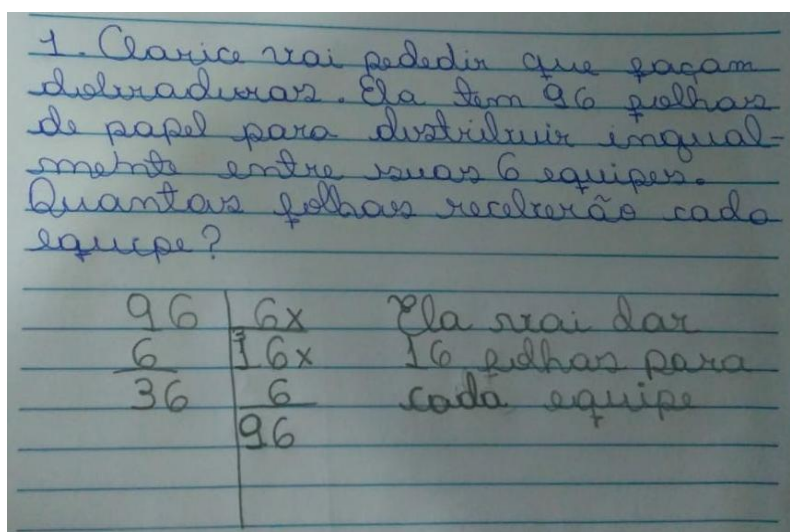 1. Clarice vai pededir que façam
dobraduras. Ela tem 96 folhas
de papel para distribuir ingual-
mente entre suas 6 equipes.
Quantas folhas receberão cada
equipe?
96 6x Ela vai dar
6 16x 16 folhas para
36 6 cada equipe
96